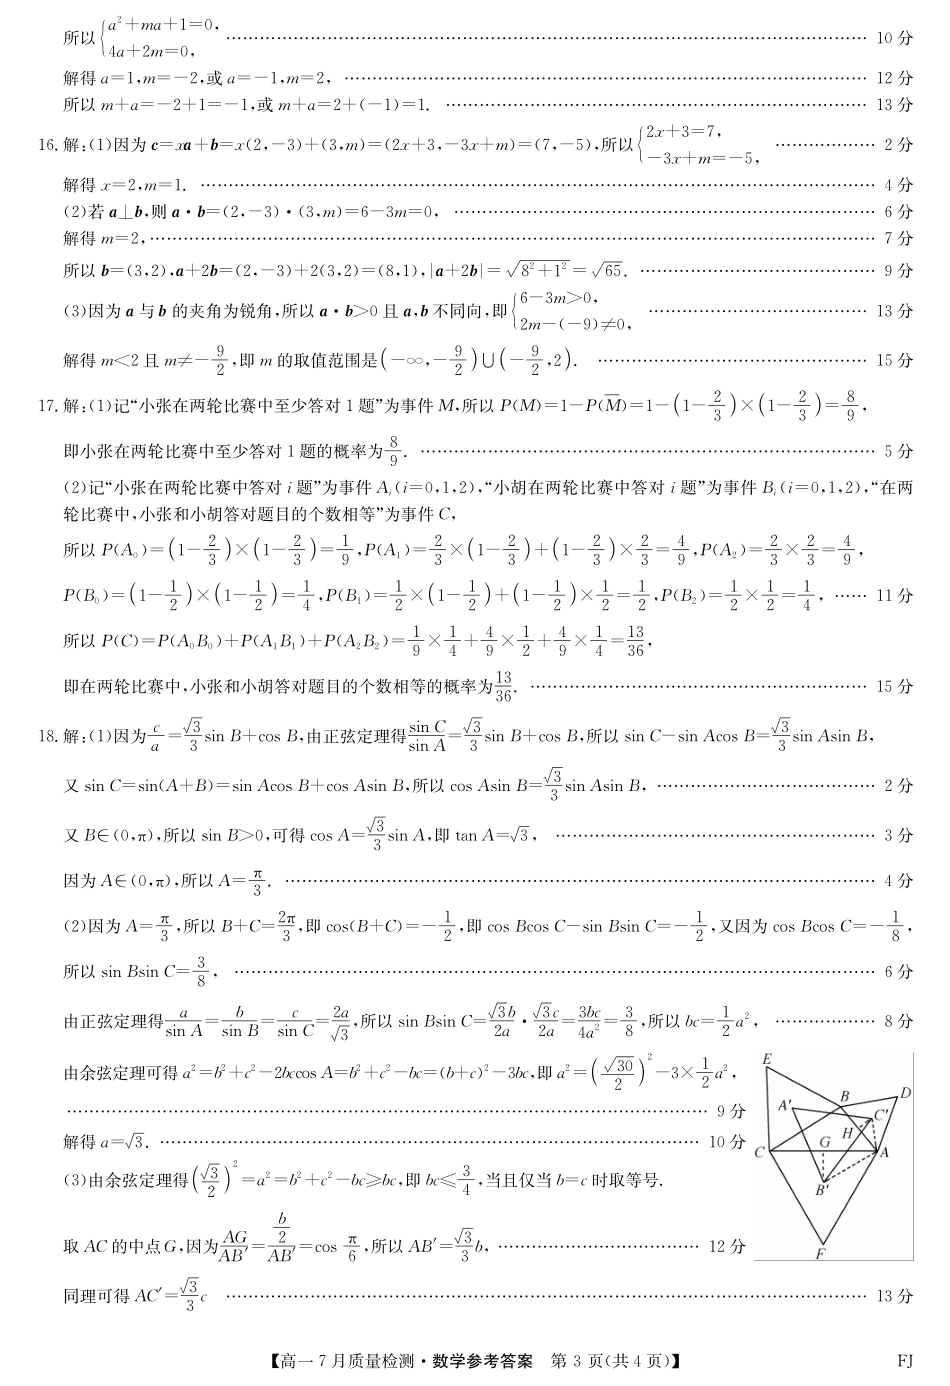 所以{a²+ma+1=0, 4a+2m=0, ………… 10 分
解得 a=1,m=-2,或 a=-1,m=2, ………… 12 分
所以 m+a=-2+1=-1,或 m+a=2+(-1)=1. ………… 13 分
16. 解:(1)因为 c=xa+b=x(2,-3)+(3,m)=(2x+3,-3x+m)=(7,-5),所以{2x+3=7, -3x+m=-5, ………… 2 分
解得 x=2,m=1. ………… 4 分
(2)若 a⊥b,则 a·b=(2,-3)·(3,m)=6-3m=0, ………… 6 分
解得 m=2, ………… 7 分
所以 b=(3,2),a+2b=(2,-3)+2(3,2)=(8,1),|a+2b|=√(8²+1²)=√65. ………… 9 分
(3)因为 a 与 b 的夹角为锐角,所以 a·b>0 且 a,b 不同向,即{6-3m>0, 2m-(-9)≠0, ………… 13 分
解得 m<2 且 m≠-9/2,即 m 的取值范围是(-∞,-9/2)∪(-9/2,2). ………… 15 分
17. 解:(1)记“小张在两轮比赛中至少答对 1 题”为事件 M,所以 P(M)=1-P(M̅)=1-(1-2/3)×(1-2/3)=8/9,
即小张在两轮比赛中至少答对 1 题的概率为8/9. ………… 5 分
(2)记“小张在两轮比赛中答对 i 题”为事件 Aᵢ(i=0,1,2),“小胡在两轮比赛中答对 i 题”为事件 Bᵢ(i=0,1,2),“在两
轮比赛中,小张和小胡答对题目的个数相等”为事件 C,
所以 P(A₀)=(1-2/3)×(1-2/3)=1/9,P(A₁)=2/3×(1-2/3)+(1-2/3)×2/3=4/9,P(A₂)=2/3×2/3=4/9,
P(B₀)=(1-1/2)×(1-1/2)=1/4,P(B₁)=1/2×(1-1/2)+(1-1/2)×1/2=1/2,P(B₂)=1/2×1/2=1/4, …… 11 分
所以 P(C)=P(A₀B₀)+P(A₁B₁)+P(A₂B₂)=1/9×1/4+4/9×1/2+4/9×1/4=13/36,
即在两轮比赛中,小张和小胡答对题目的个数相等的概率为13/36. ………… 15 分
18. 解:(1)因为c/a=√3/3 sin B+cos B,由正弦定理得sin C/sin A=√3/3 sin B+cos B,所以 sin C-sin Acos B=√3/3 sin Asin B,
又 sin C=sin(A+B)=sin Acos B+cos Asin B,所以 cos Asin B=√3/3 sin Asin B, ………… 2 分
又 B∈(0,π),所以 sin B>0,可得 cos A=√3/3 sin A,即 tan A=√3, ………… 3 分
因为 A∈(0,π),所以 A=π/3. ………… 4 分
(2)因为 A=π/3,所以 B+C=2π/3,即 cos(B+C)=-1/2,即 cos Bcos C-sin Bsin C=-1/2,又因为 cos Bcos C=-1/8,
所以 sin Bsin C=3/8, ………… 6 分
由正弦定理得a/sin A=b/sin B=c/sin C=2a/√3,所以 sin Bsin C=√3b/2a·√3c/2a=3bc/4a²=3/8,所以 bc=1/2a², ………… 8 分
由余弦定理可得 a²=b²+c²-2bccos A=b²+c²-bc=(b+c)²-3bc,即 a²=(√30/2)²-3×1/2a²,
………… 9 分
解得 a=√3. ………… 10 分
(3)由余弦定理得(√3/2)²=a²=b²+c²-bc≥bc,即 bc≤3/4,当且仅当 b=c 时取等号.
取 AC 的中点 G,因为AG/AB′=(b/2)/AB′=cos π/6,所以 AB′=√3/3 b, ………… 12 分
同理可得 AC′=√3/3 c ………… 13 分
E
B
D
A′
C′
H
G
C
A
B′
F
【高一 7 月质量检测·数学参考答案 第 3 页(共 4 页)】
FJ